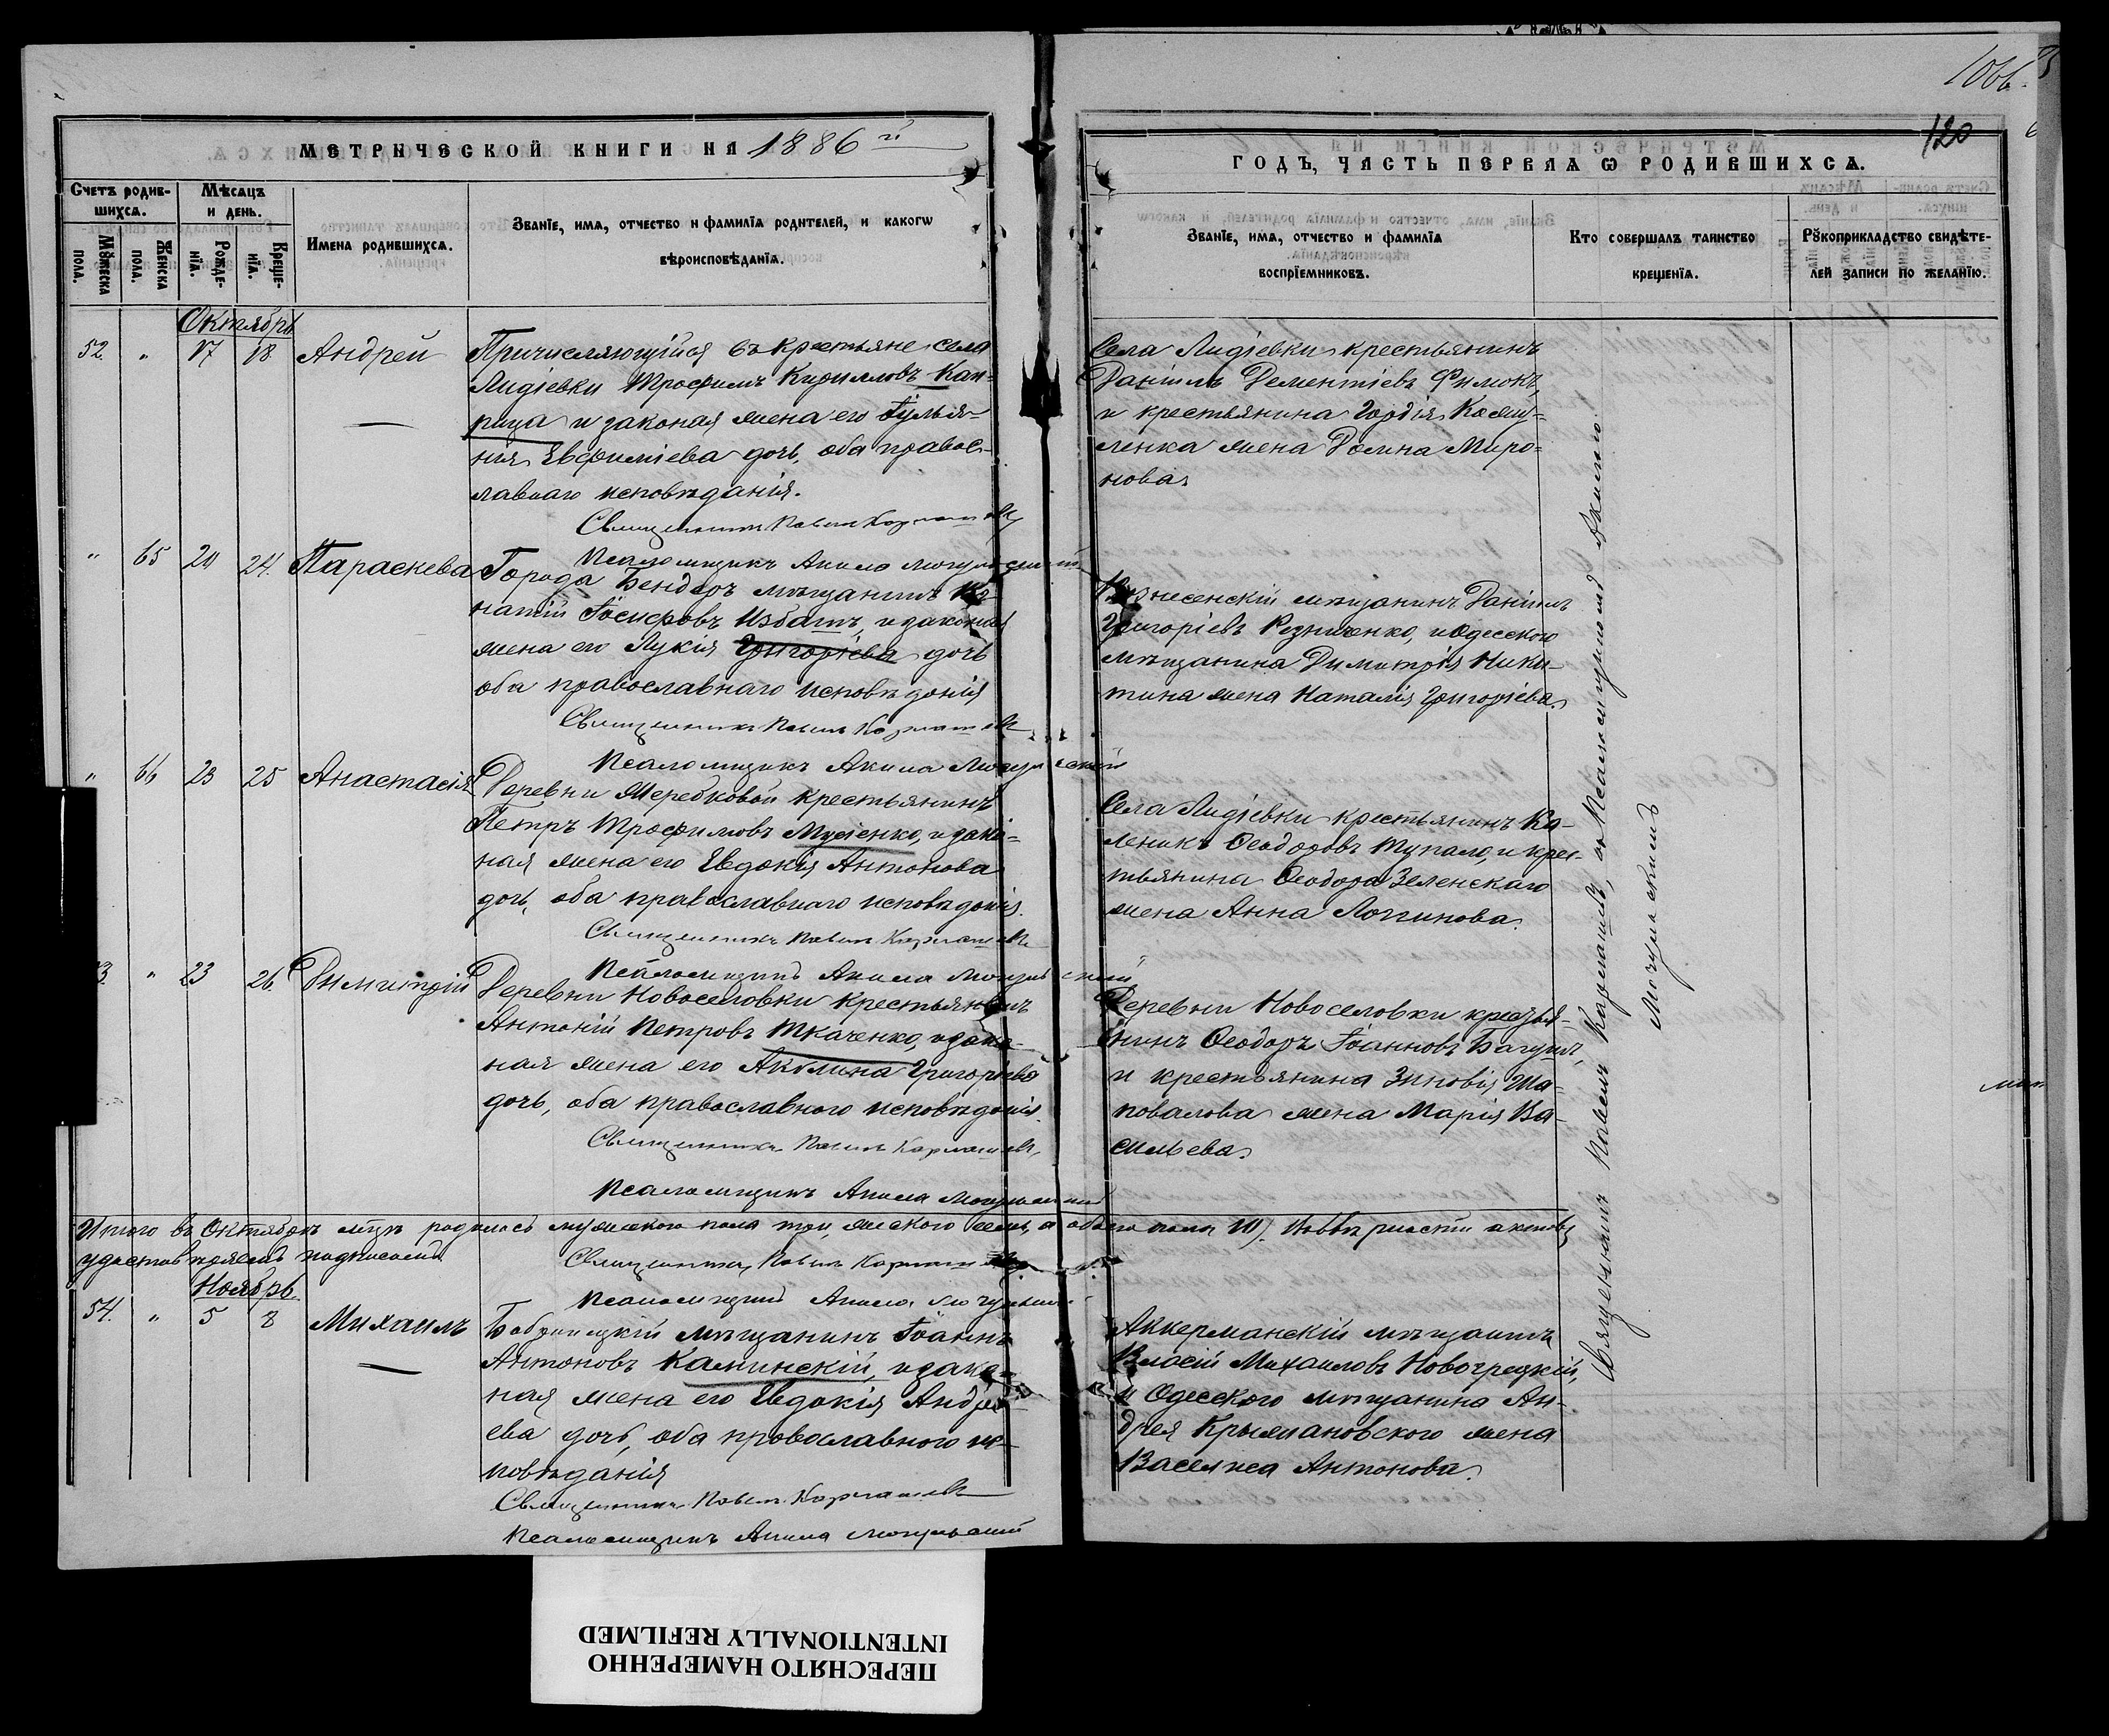 1066.
120
МЕТРИЧЕСКОЙ КНИГИ НА 1886 й
ГОДЪ, ЧАСТЬ ПЕРВАЯ Ѡ РОДИВШИХСЯ.
Счетъ родив-
шихся.
Мѣсяцъ
и день.
Мꙋжеска
пола.
Женска
пола.
Рожде-
нїя.
Креще-
нїя.
Имена родившихся.
Званїе, имя, отчество и фамилїя родителей, и какогѡ
вѣроисповѣданїя.
Званїе, имя, отчество и фамилїя
воспрїемниковъ.
Кто совершалъ таинство
крещенїя.
Рꙋкоприкладство свидѣте-
лей записи по желанїю.
Октябрь
52. " 17 18 Андрей
Причисляющійся въ крестьяне села
Лидіевки Трофимъ Кирилловъ Кап-
рица и законая жена его Іульян-
ния Евфиміева дочь, оба правос-
лавнаго исповѣданія.
Священникъ Павелъ
Псаломщикъ Акила
Села Лидіевки крестьянинъ
Даніилъ Дементіевъ Фимокъ,
и крестьянина Гордія
ленка жена Домна Миро-
нова.
" 65 20 24. Параскева
Города Бендеръ мѣщанинъ
натій Іосифовъ Избашъ, и законая
жена его Лукія Григоріева дочь
оба православнаго исповѣданія
Священникъ Павелъ
Псаломщикъ Акила
Вознесенскій мѣщанинъ Даніилъ
Григоріевъ Резниченко, и Одесскаго
мѣщанина Димитрія Ники-
тина жена Наталія Григоріева.
" 66 23 25 Анастасія
Деревни Жеребковой крестьянинъ
Петръ Трофимовъ Мусіенко, и зако-
ная жена его Евдокія Антонова
дочь, оба православнаго исповѣданія.
Священникъ Павелъ
Псаломщикъ Акила
Села Лидіевки крестьянинъ Ка-
леникъ Ѳеодоровъ Тупало, и крес-
тьянина Ѳеодора Зеленскаго
жена Анна Логинова.
3. " 23 26. Димитрій
Деревни Новоселовки крестьянинъ
Антоній Петровъ Ткаченко, и зако-
ная жена его Акилина Григорьева
дочь, оба православнаго исповѣданія.
Священникъ Павелъ
Псаломщикъ Акила
Деревни Новоселовки крестья-
нинъ Ѳеодоръ Іоанновъ
и крестьянина Зиновія Ша-
повалова жена Марія Ва-
сильева.
Итого въ Октябрѣ м-цѣ родилось мужескаго пола три, женскаго семь, а обоего пола 10). Что въ вѣрности актовъ
удостовѣряемъ подписомъ
Священникъ Павелъ
Псаломщикъ Акила
Ноябрь
54. " 5 8 Михаилъ
Бобринецкій мѣщанинъ Іоаннъ
Антоновъ Каминскій, и зако-
ная жена его Евдокія Андре-
ева дочь, оба православнаго ис-
повѣданія
Священникъ Павелъ
Псаломщикъ Акила
Аккерманскій мѣщанинъ
Власій Михаиловъ Новогрецкій,
и Одесскаго мѣщанина Ан-
дрея Крыжановскаго жена
Василиса Антонова.
Священникъ Павелъ
ПЕРЕСНЯТО НАМЕРЕННО
INTENTIONALLY REFILMED